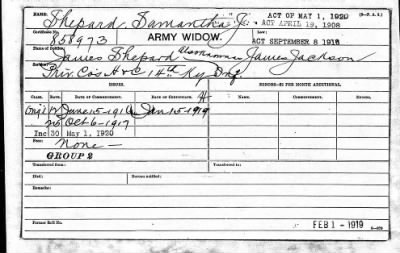 NAME: Shepard, Samantha J. ACT OF MAY 1, 1920
ACT APRIL 19, 1908
Certificate No. 858973 ARMY WIDOW. Law: ACT SEPTEMBER 8 1916
Name of Soldier: James Shepard Alias James Jackson
Service: Priv. Cos A & C 14th Ky Inf.
ISSUES. MINORS—$2 PER MONTH ADDITIONAL.
CLASS. RATE. DATE OF COMMENCEMENT. DATE OF CERTIFICATE. NAMES. DATE OF COMMENCEMENT.
Orig'l 12 June 15-1916 Jan 15-1919
25 Oct 6-1917
Inc 30 May 1, 1920
From: None
GROUP 2
Transferred from:
Died: Bureau notified:
Remarks:
Former Roll No. FEB 1 - 1919